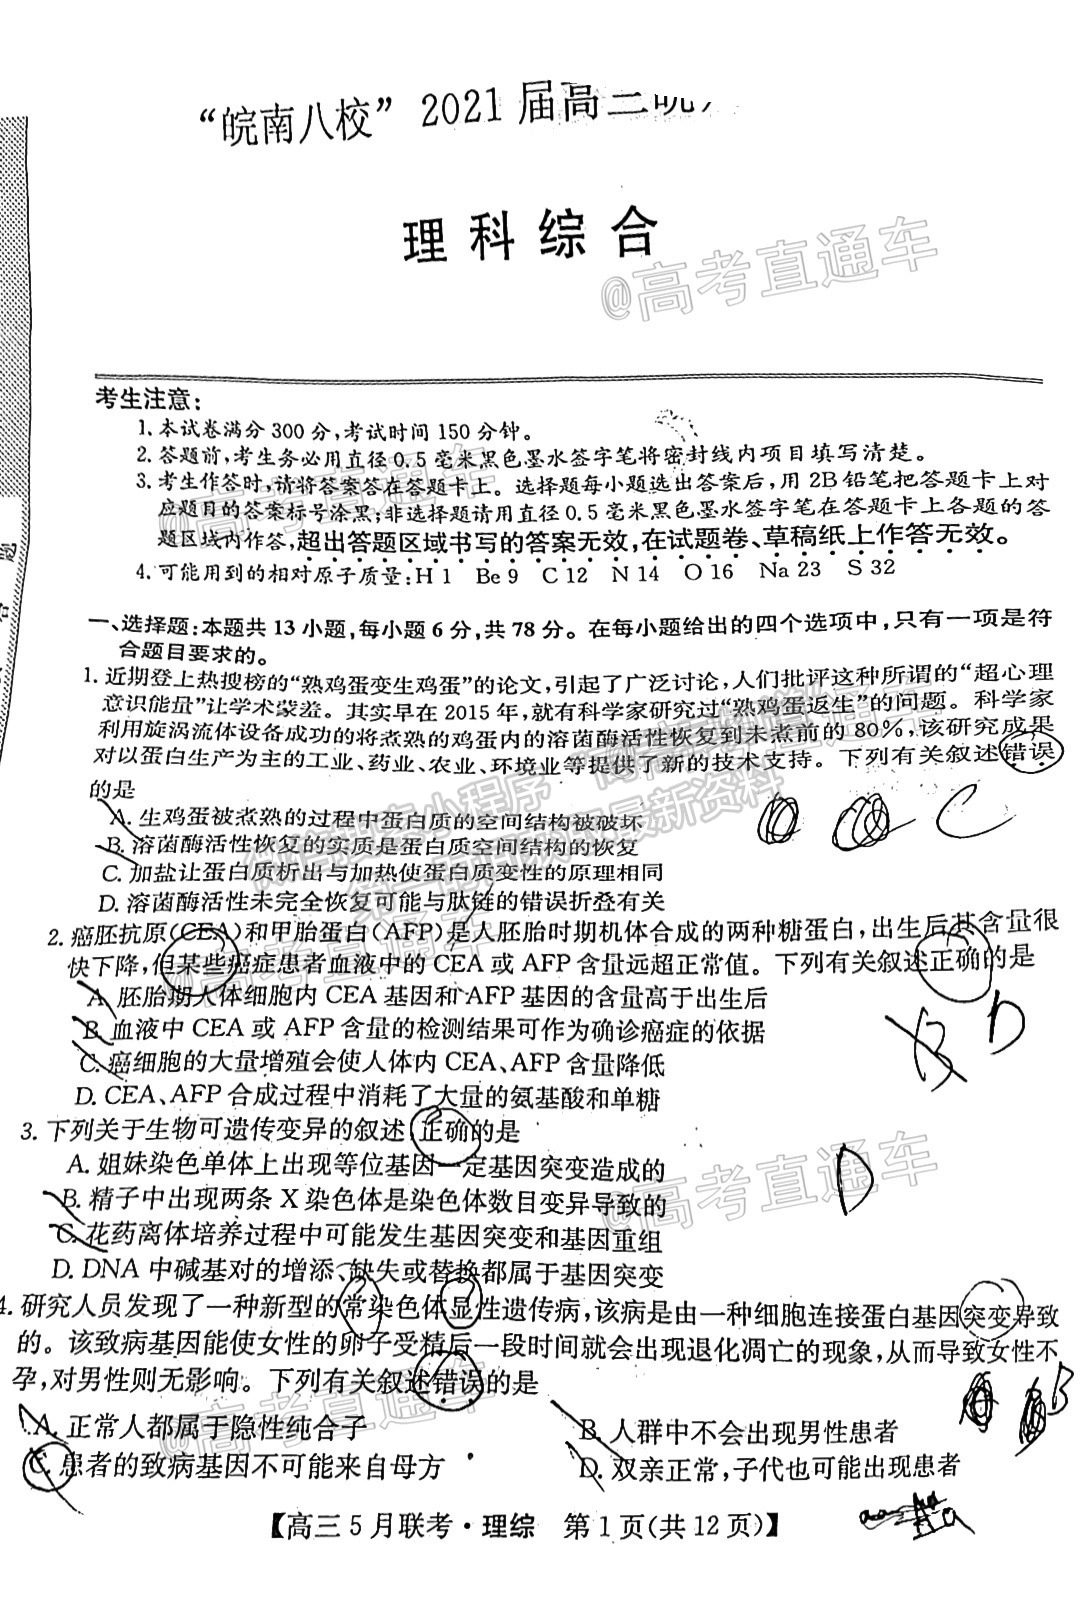 “皖南八校”2021届高三
理科综合
@高考直通车
考生注意：
1.本试卷满分300分，考试时间150分钟。
2.答题前，考生务必用直径0.5毫米黑色墨水签字笔将密封线内项目填写清楚。
3.考生作答时，请将答案答在答题卡上。选择题每小题选出答案后，用2B铅笔把答题卡上对
应题目的答案标号涂黑；非选择题请用直径0.5毫米黑色墨水签字笔在答题卡上各题的答
题区域内作答，超出答题区域书写的答案无效，在试题卷、草稿纸上作答无效。
4.可能用到的相对原子质量：H 1 Be 9 C 12 N 14 O 16 Na 23 S 32
一、选择题：本题共13小题，每小题6分，共78分。在每小题给出的四个选项中，只有一项是符
合题目要求的。
1.近期登上热搜榜的“熟鸡蛋变生鸡蛋”的论文，引起了广泛讨论，人们批评这种所谓的“超心理
意识能量”让学术蒙羞。其实早在2015年，就有科学家研究过“熟鸡蛋返生”的问题。科学家
利用旋涡流体设备成功的将煮熟的鸡蛋内的溶菌酶活性恢复到未煮前的80%，该研究成果
对以蛋白生产为主的工业、药业、农业、环境业等提供了新的技术支持。下列有关叙述错误
的是
A.生鸡蛋被煮熟的过程中蛋白质的空间结构被破坏
B.溶菌酶活性恢复的实质是蛋白质空间结构的恢复
C.加盐让蛋白质析出与加热使蛋白质变性的原理相同
D.溶菌酶活性未完全恢复可能与肽链的错误折叠有关
C
2.癌胚抗原(CEA)和甲胎蛋白(AFP)是人胚胎时期机体合成的两种糖蛋白，出生后其含量很
快下降，但某些癌症患者血液中的CEA或AFP含量远超正常值。下列有关叙述正确的是
A.胚胎期人体细胞内CEA基因和AFP基因的含量高于出生后
B.血液中CEA或AFP含量的检测结果可作为确诊癌症的依据
C.癌细胞的大量增殖会使人体内CEA、AFP含量降低
D.CEA、AFP合成过程中消耗了大量的氨基酸和单糖
B D
3.下列关于生物可遗传变异的叙述，正确的是
A.姐妹染色单体上出现等位基因一定基因突变造成的
B.精子中出现两条X染色体是染色体数目变异导致的
C.花药离体培养过程中可能发生基因突变和基因重组
D.DNA中碱基对的增添、缺失或替换都属于基因突变
D
@高考直通车
4.研究人员发现了一种新型的常染色体显性遗传病，该病是由一种细胞连接蛋白基因突变导致
的。该致病基因能使女性的卵子受精后一段时间就会出现退化凋亡的现象，从而导致女性不
孕，对男性则无影响。下列有关叙述错误的是
A.正常人都属于隐性纯合子 B.人群中不会出现男性患者
C.患者的致病基因不可能来自母方 D.双亲正常，子代也可能出现患者
B
@高考直通车
【高三5月联考·理综 第1页(共12页)】